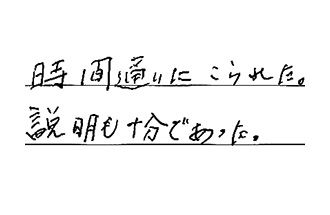 時間通りにこられた。
説明も十分であった。